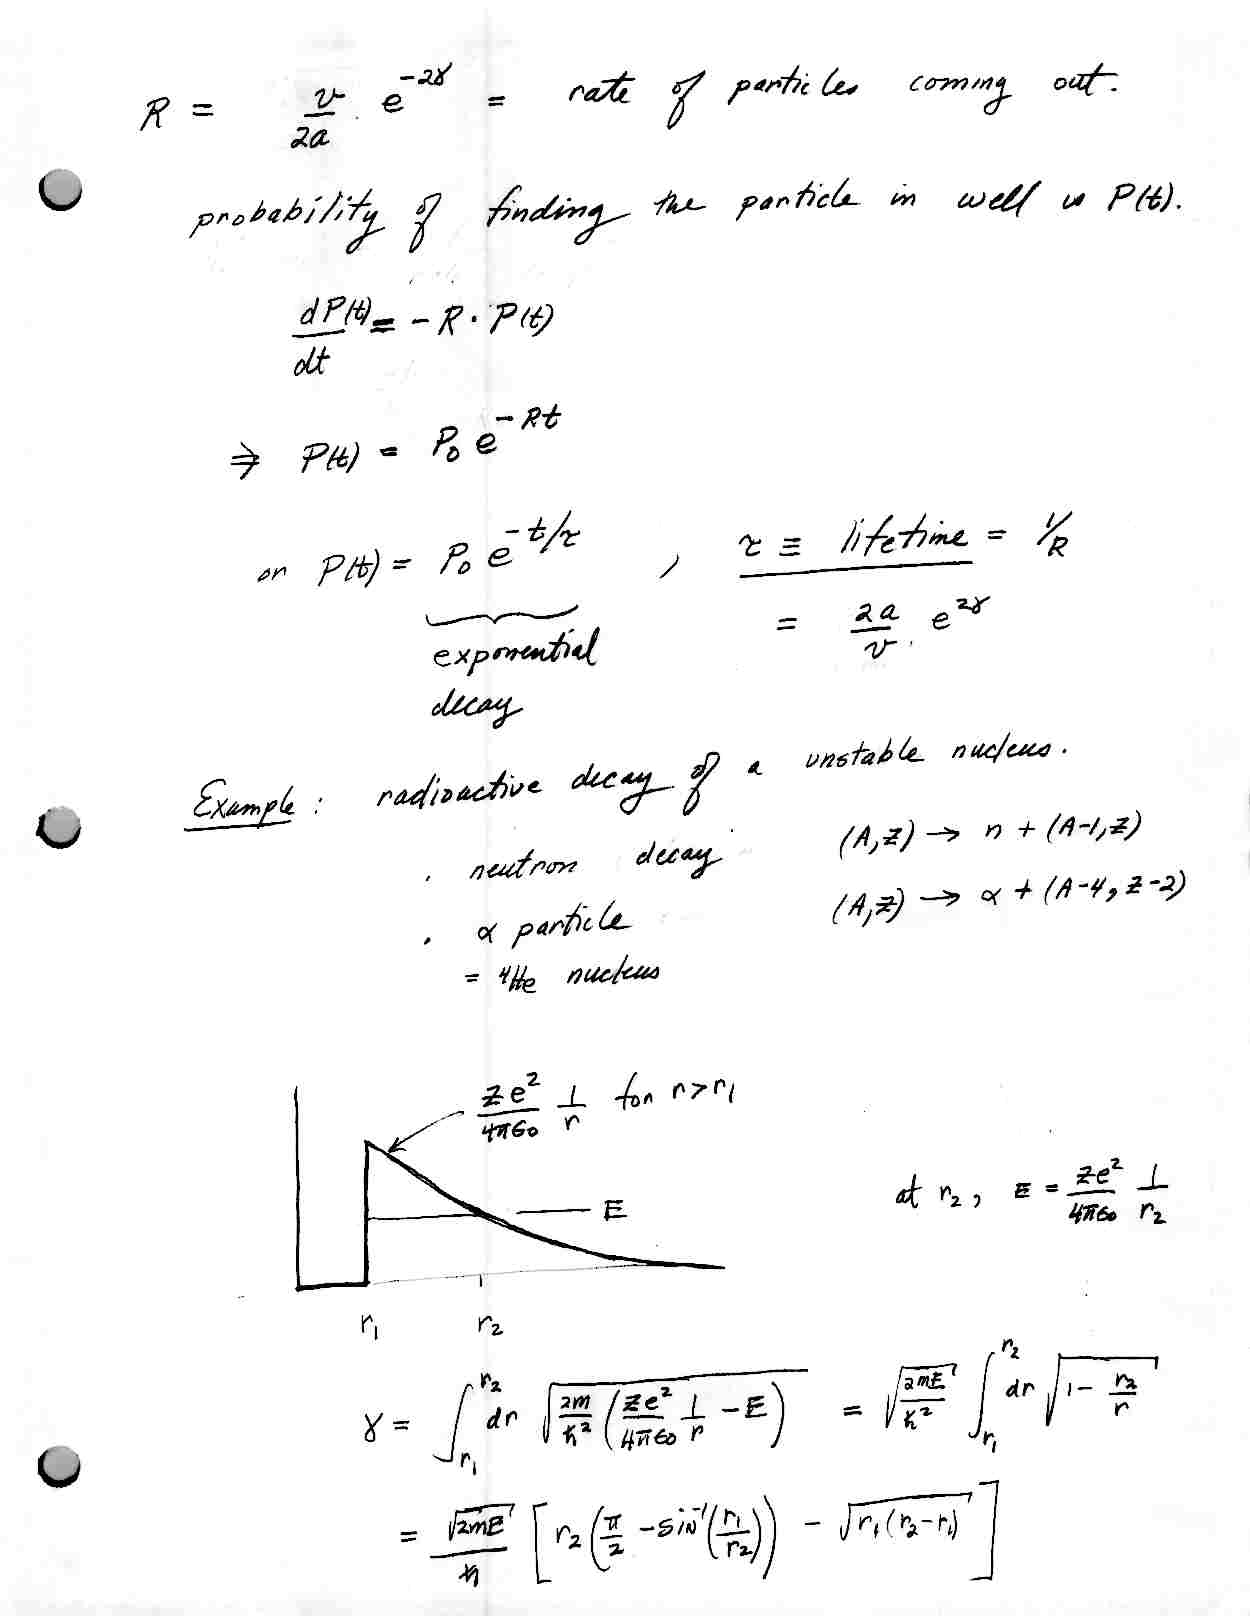 R = v/2a · e^{-2γ} = rate of particles coming out.
probability of finding the particle in well is P(t).
dP(t)/dt = - R · P(t)
⇒ P(t) = P₀ e^{-Rt}
or P(t) = P₀ e^{-t/τ} , τ ≡ lifetime = 1/R
= 2a/v · e^{2γ}
exponential
decay
Example : radioactive decay of a unstable nucleus.
· neutron decay (A,Z) → n + (A-1,Z)
· α particle (A,Z) → α + (A-4, Z-2)
= ⁴He nucleus
Ze²/4πε₀ 1/r for r>r₁
E
at r₂, E = Ze²/4πε₀ 1/r₂
r₁ r₂
γ = ∫_{r₁}^{r₂} dr √(2m/ħ² (Ze²/4πε₀ 1/r - E)) = √(2mE/ħ²) ∫_{r₁}^{r₂} dr √(1 - r₂/r)
= √(2mE)/ħ [ r₂ (π/2 - sin⁻¹(r₁/r₂)) - √(r₁(r₂-r₁)) ]